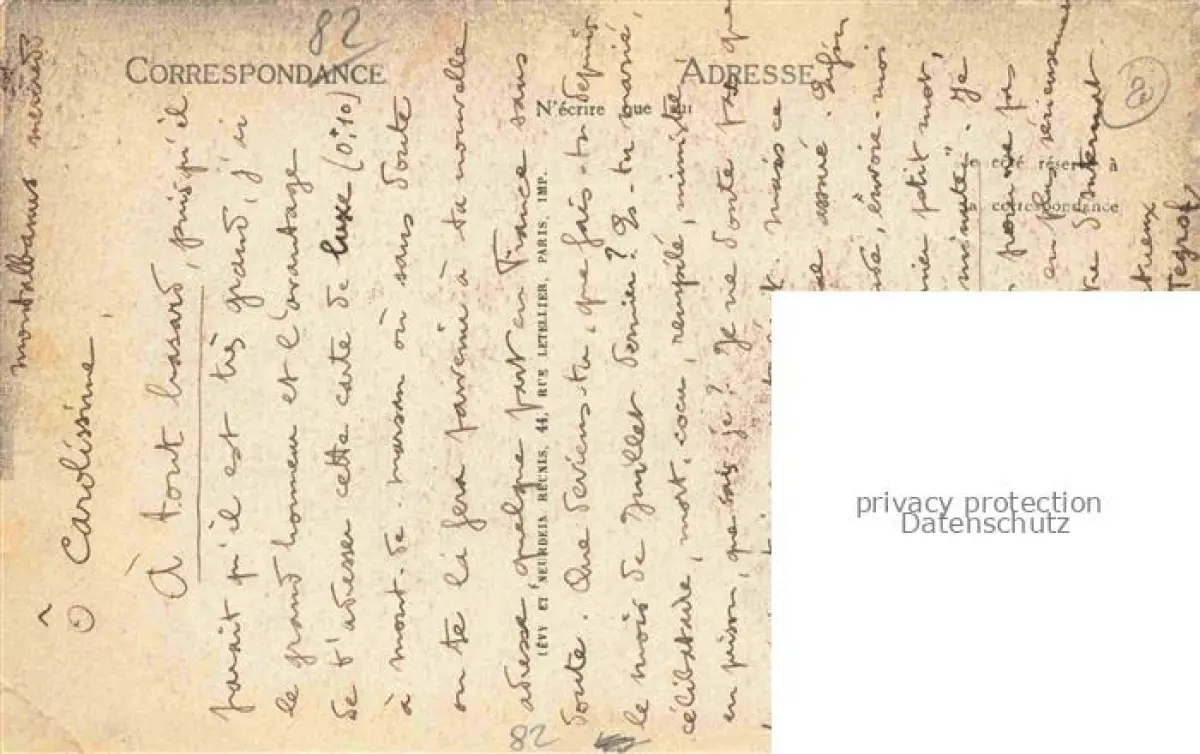 82
CORRESPONDANCE
ADRESSE
N'écrire que sur
le côté réservé à
la correspondance
LÉVY ET NEURDEIN RÉUNIS, 44, RUE LETELLIER, PARIS, IMP.
montalbanus
Ô Carolissime,
À tout hasard, puisqu'il
paraît qu'il est très grand, j'ai
le grand honneur et l'avantage
de t'adresser cette carte de luxe (0.10)
à mont-de-marsan où sans doute
on te la fera parvenir à ta nouvelle
adresse, quelque part en France sans
doute. Que deviens-tu, que fais-tu depuis
le mois de Juillet dernier? Es-tu marié,
célibataire, mort, cocu, rempilé, ministre,
en prison, que sais-je? Je ne doute pas que
mais ce
assuré.
envoie-moi
petit mot,
minute". Je
pas
en plus sérieusement
Internat
privacy protection
Datenschutz
82